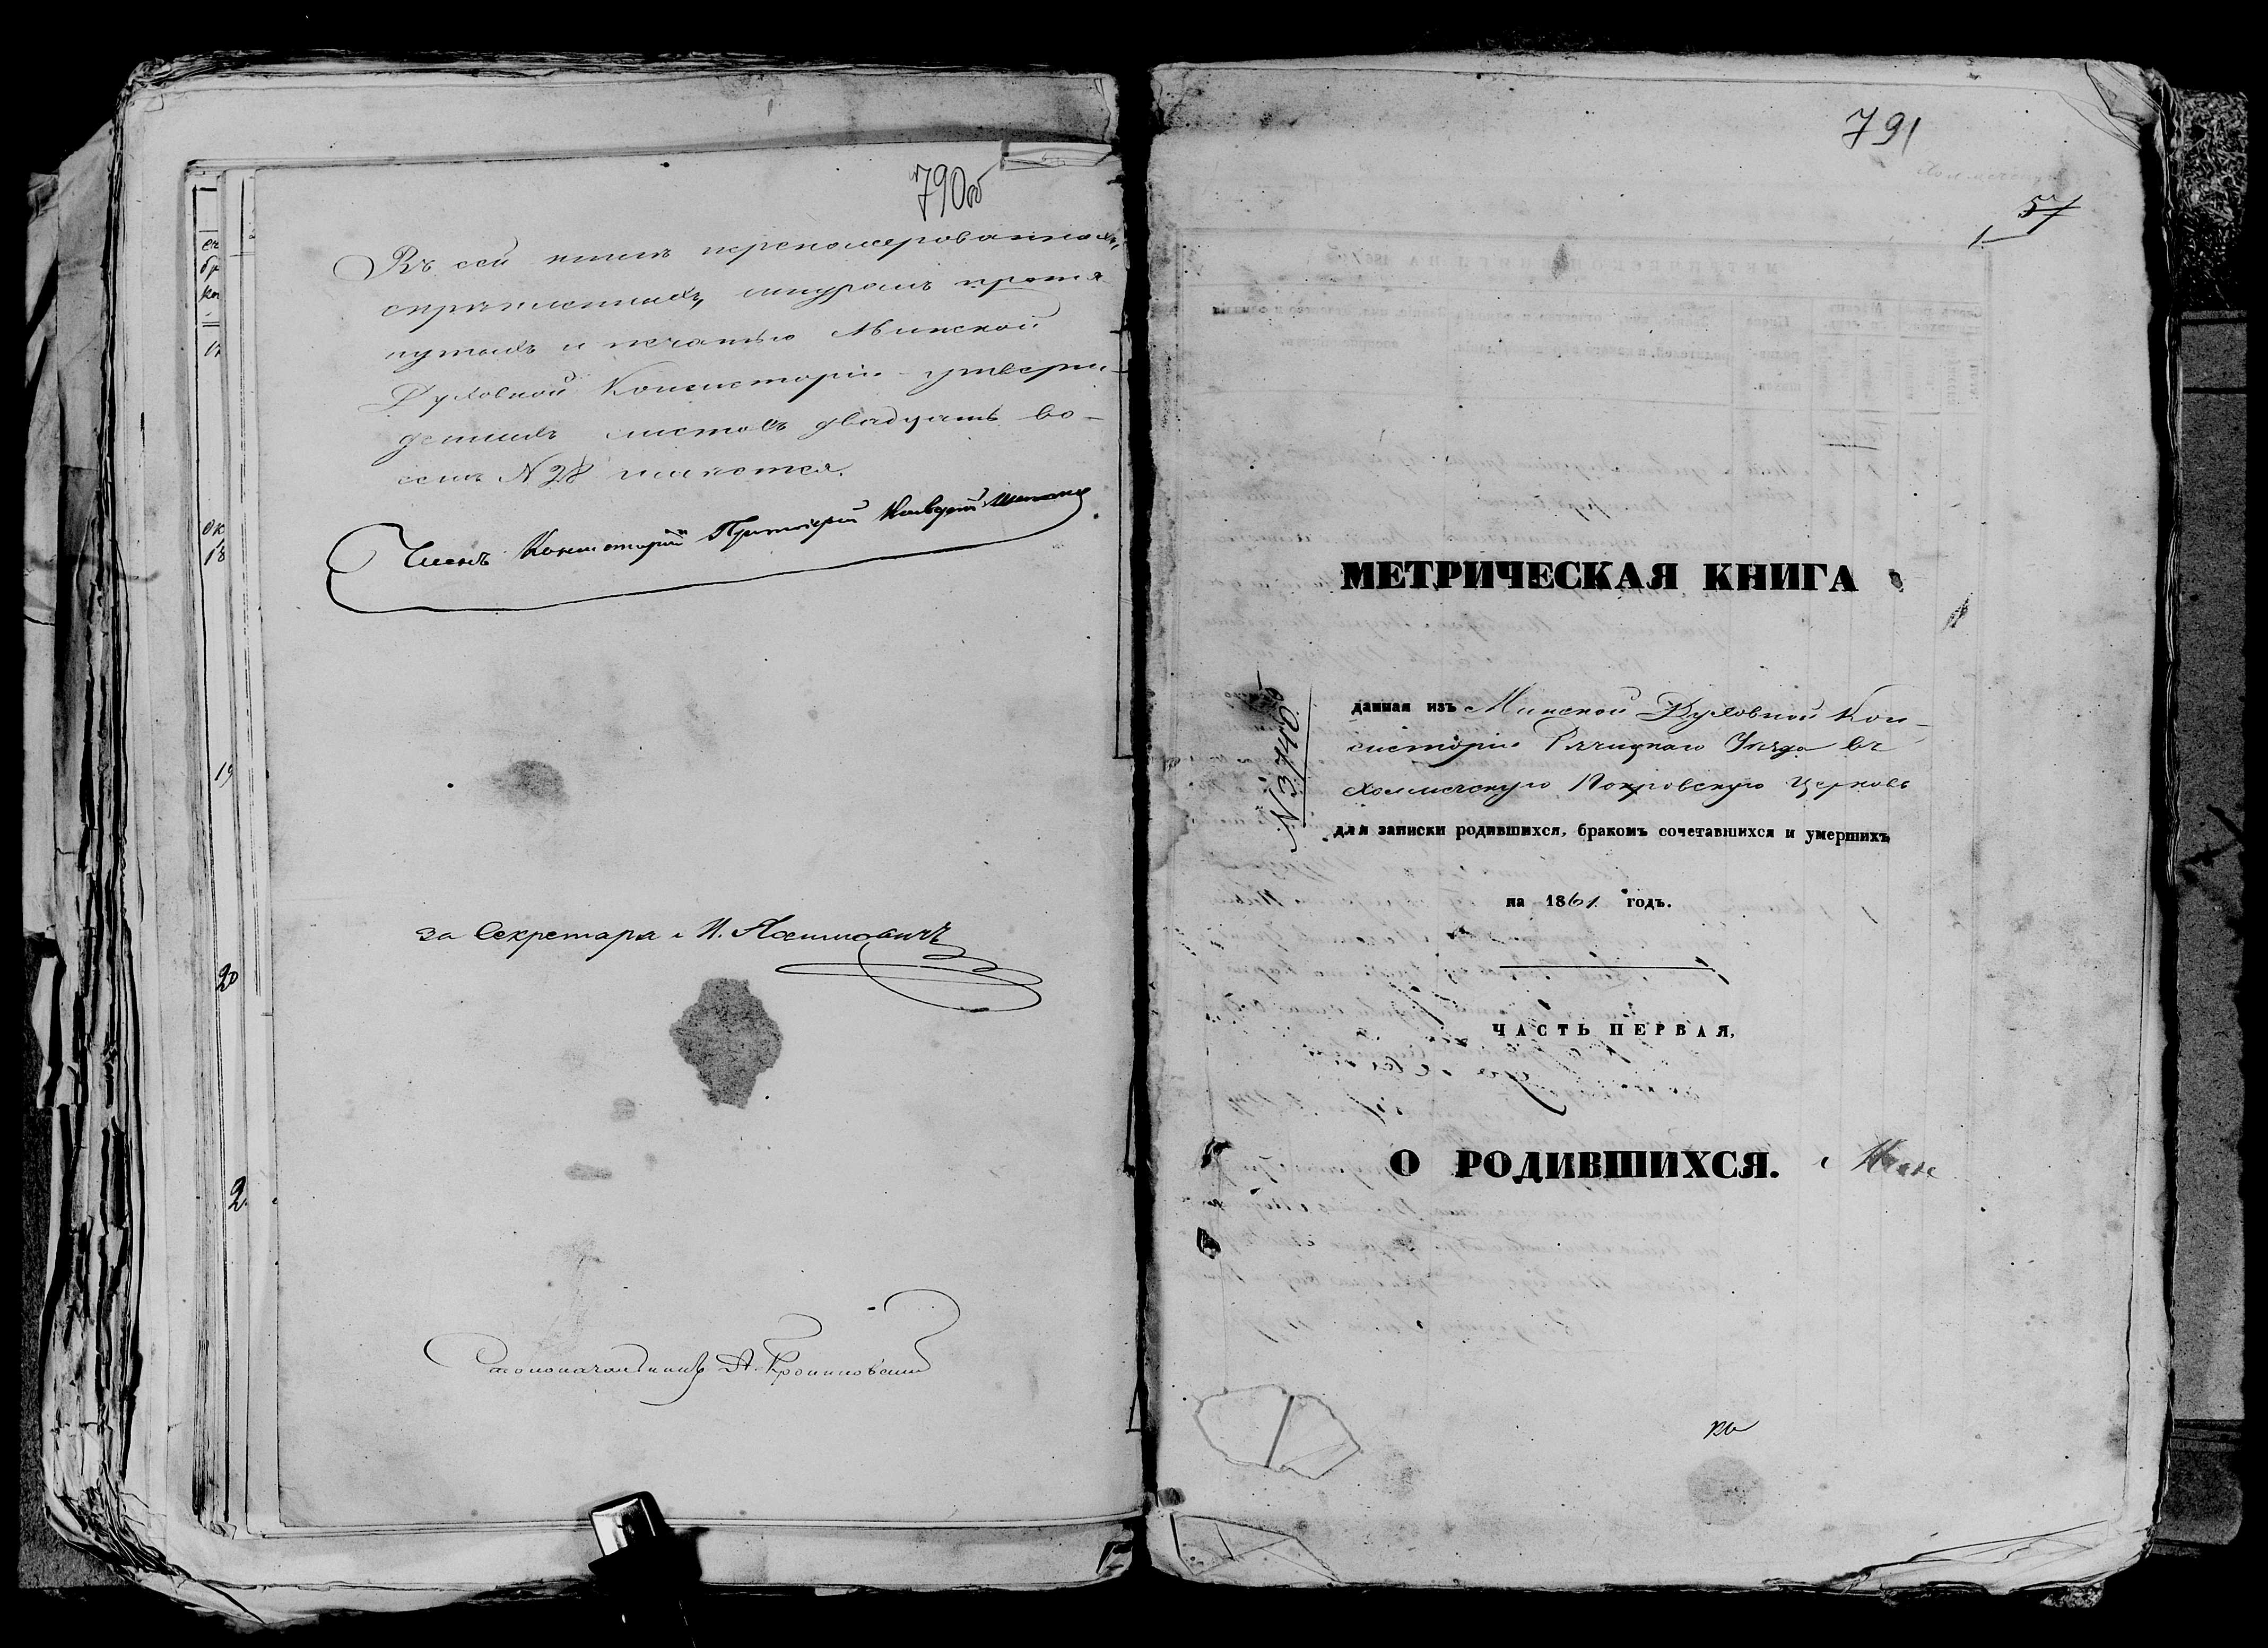 790об
Въ сей книгѣ перенумерованныхъ,
скрѣпленныхъ, шнуромъ протя
нутыхъ и печатью Минской
Духовной Консисторіи утверж-
денныхъ листовъ двадцать во-
семь N 28 имѣется.
Членъ Консисторіи Протоіерей
за Секретаря И.
Столоначальникъ А.
ок
18
19
20
2
791
57
1
МЕТРИЧЕСКАЯ КНИГА
N 3740
данная изъ Минской Духовной Кон-
систоріи Рѣчицкаго Уѣзда въ
Холмечскую Покровскую церковь
для записки родившихся, бракомъ сочетавшихся и умершихъ
на 1861 годъ.
ЧАСТЬ ПЕРВАЯ,
О РОДИВШИХСЯ.